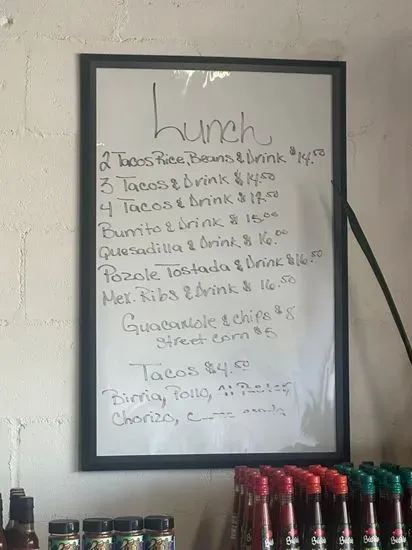 Lunch
2 Tacos Rice, Beans & Drink $14.50
3 Tacos & Drink $14.50
4 Tacos & Drink $19.50
Burrito & Drink $ 15.00
Quesadilla & Drink $ 16.00
Pozole Tostada & Drink $16.50
Mex. Ribs & Drink $ 16.50
Guacamole & chips $8
Street corn $5
Tacos $4.50
Birria, Pollo, Al Pastor,
Chorizo,